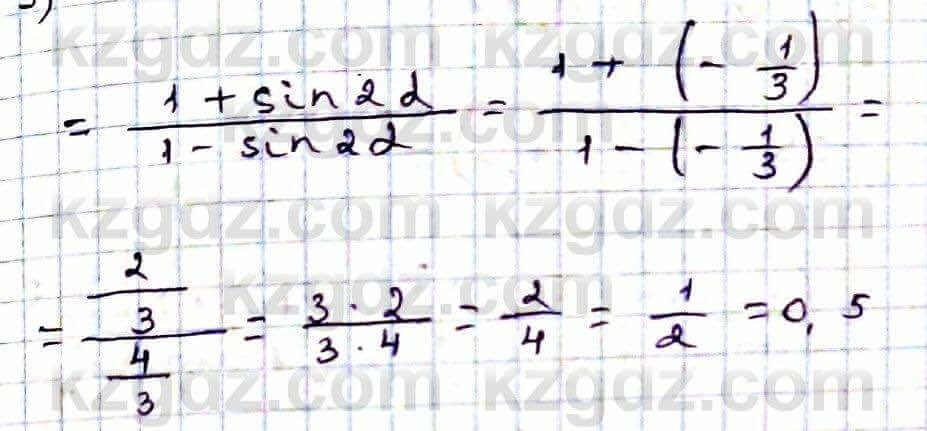 3)
= (1 + sin2α)/(1 - sin2α) = (1 + (- 1/3))/(1 - (- 1/3)) =
= (2/3)/(4/3) = (3 · 2)/(3 · 4) = 2/4 = 1/2 = 0,5
kzgdz.com kzgdz.com
kzgdz.com
kzgdz.com kzgdz.com
kzgdz.com
kzgdz.com kzgdz.com